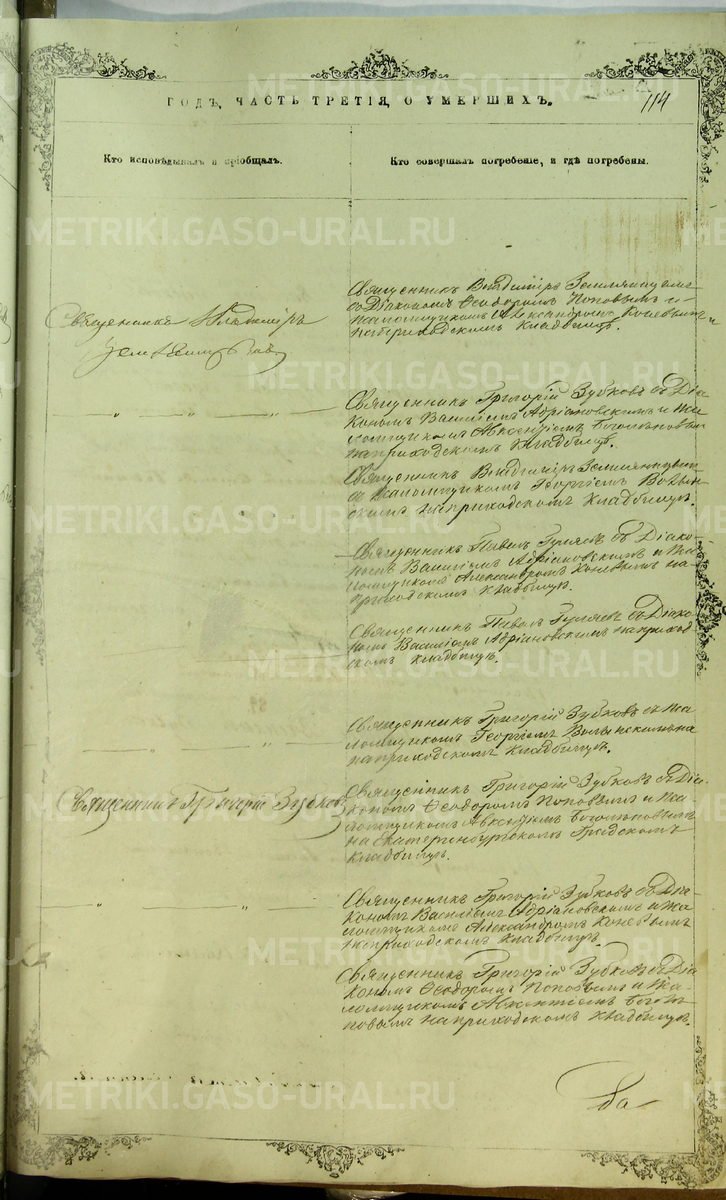 114
ГОДЪ, ЧАСТЬ ТРЕТІЯ, О УМЕРШИХЪ.
Кто исповѣдывалъ и пріобщалъ.
Кто совершалъ погребеніе, и гдѣ погребены.
METRIKI.GASO-URAL.RU
Священникъ Владиміръ
Священникъ Владиміръ Землян
съ Діакономъ Ѳеодоромъ Поповымъ и
псаломщикомъ Александромъ Коневымъ
на приходскомъ кладбищѣ.
Священникъ Григорій Зубковъ съ Діа
кономъ Василіемъ Адріановскимъ и пса
ломщикомъ Авксентіемъ Боголѣповымъ
на приходскомъ кладбищѣ.
Священникъ Владиміръ
съ псаломщикомъ Георгіемъ Волын
скимъ на приходскомъ кладбищѣ.
Священникъ Павелъ Гуляевъ съ Діако
номъ Василіемъ Адріановскимъ и пса
ломщикомъ Александромъ Коневымъ на
приходскомъ кладбищѣ.
Священникъ Павелъ Гуляевъ съ Діако
номъ Василіемъ Адріановскимъ на приход
скомъ кладбищѣ.
Священникъ Григорій Зубковъ съ пса
ломщикомъ Георгіемъ Волынскимъ на
на приходскомъ кладбищѣ.
Священникъ Григорій Зубковъ
Священникъ Григорій Зубковъ съ Діа
кономъ Ѳеодоромъ Поповымъ и пса
ломщикомъ Авксентіемъ Боголѣповымъ
на Екатеринбургскомъ Градскомъ
кладбищѣ.
Священникъ Григорій Зубковъ съ Діа
кономъ Василіемъ Адріановскимъ и пса
ломщикомъ Александромъ Коневымъ
на приходскомъ кладбищѣ.
Священникъ Григорій Зубковъ съ Діа
кономъ Ѳеодоромъ Поповымъ и пса-
ломщикомъ Авксентіемъ Боголѣ
повымъ на приходскомъ кладбищѣ.